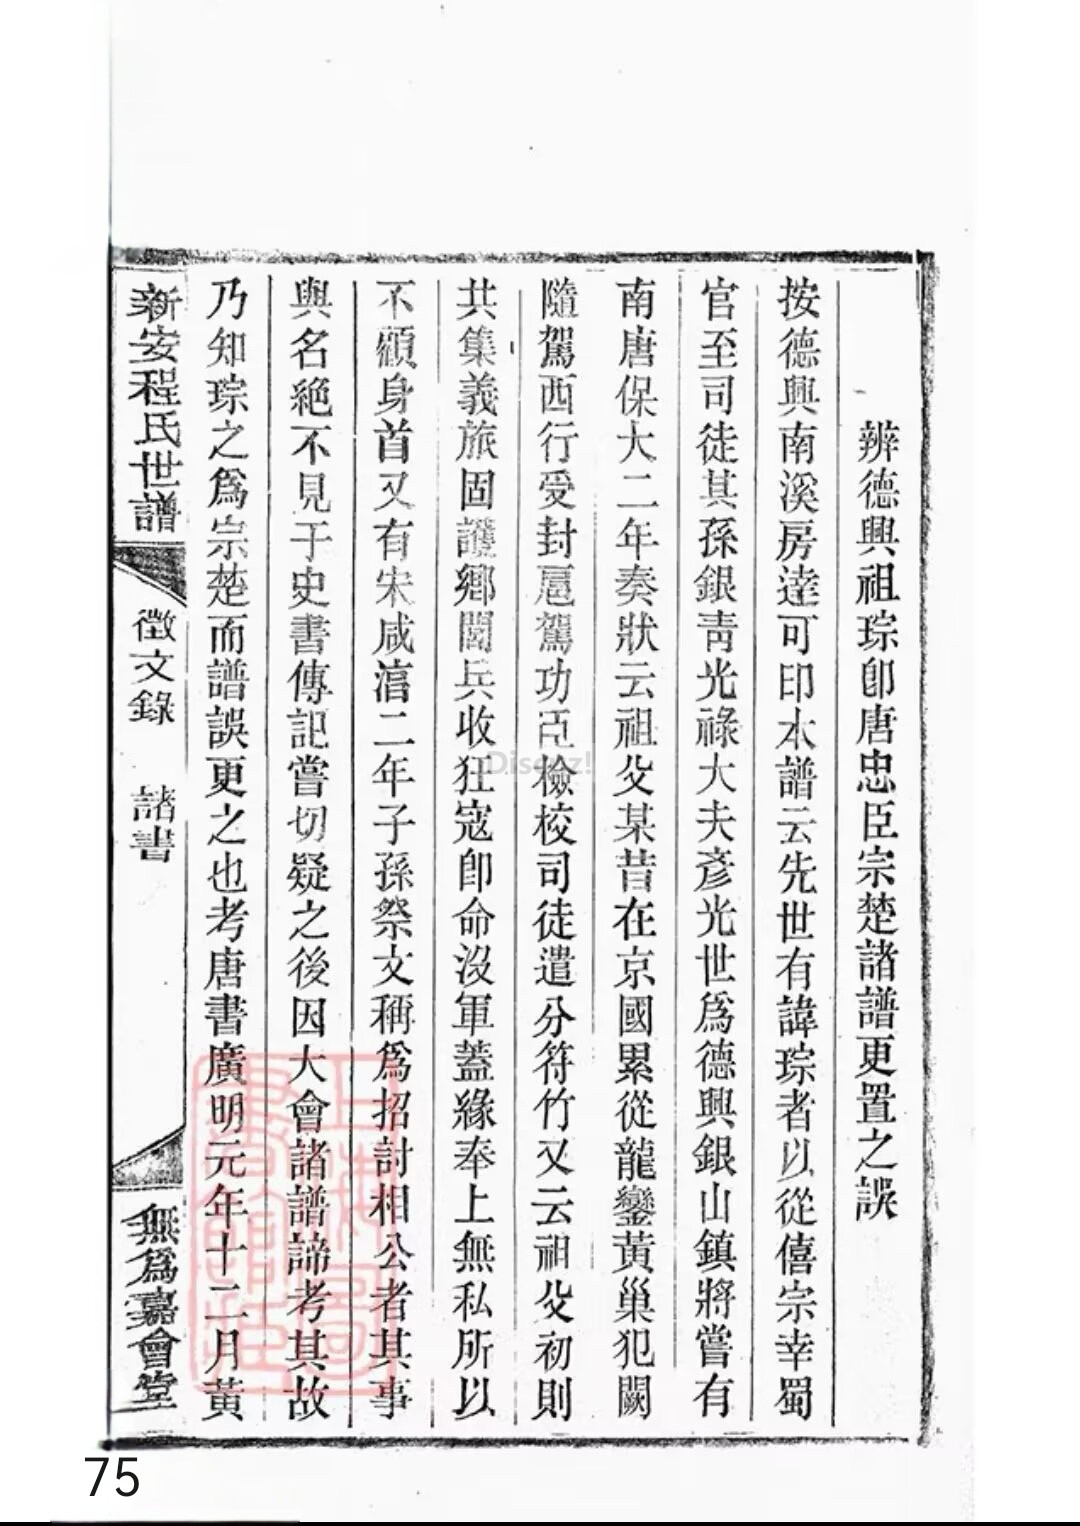 辨德興祖琮卽唐忠臣宗楚諸譜更置之誤
按德興南溪房達可印本譜云先世有諱琮者以從僖宗幸蜀
官至司徒其孫銀靑光祿大夫彥光世爲德興銀山鎮將嘗有
南唐保大二年奏狀云祖父某昔在京國累從龍鑾黃巢犯闕
隨駕西行受封扈駕功臣檢校司徒遣分符竹又云祖父初則
共集義旅固護鄉閭兵收狂寇卽命沒軍蓋緣奉上無私所以
不顧身首又有宋咸湻二年子孫祭文稱爲招討相公者其事
與名絕不見于史書傳記嘗切疑之後因大會諸譜諦考其故
乃知琮之爲宗楚而譜誤更之也考唐書廣明元年十二月黃
新安程氏世譜
徵文錄
諸書
無爲嘉會堂
75